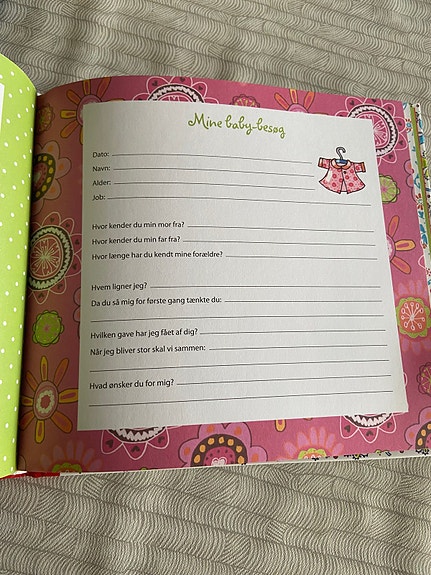 Mine baby-besøg
Dato:
Navn:
Alder:
Job:
Hvor kender du min mor fra?
Hvor kender du min far fra?
Hvor længe har du kendt mine forældre?
Hvem ligner jeg?
Da du så mig for første gang tænkte du:
Hvilken gave har jeg fået af dig?
Når jeg bliver stor skal vi sammen:
Hvad ønsker du for mig?